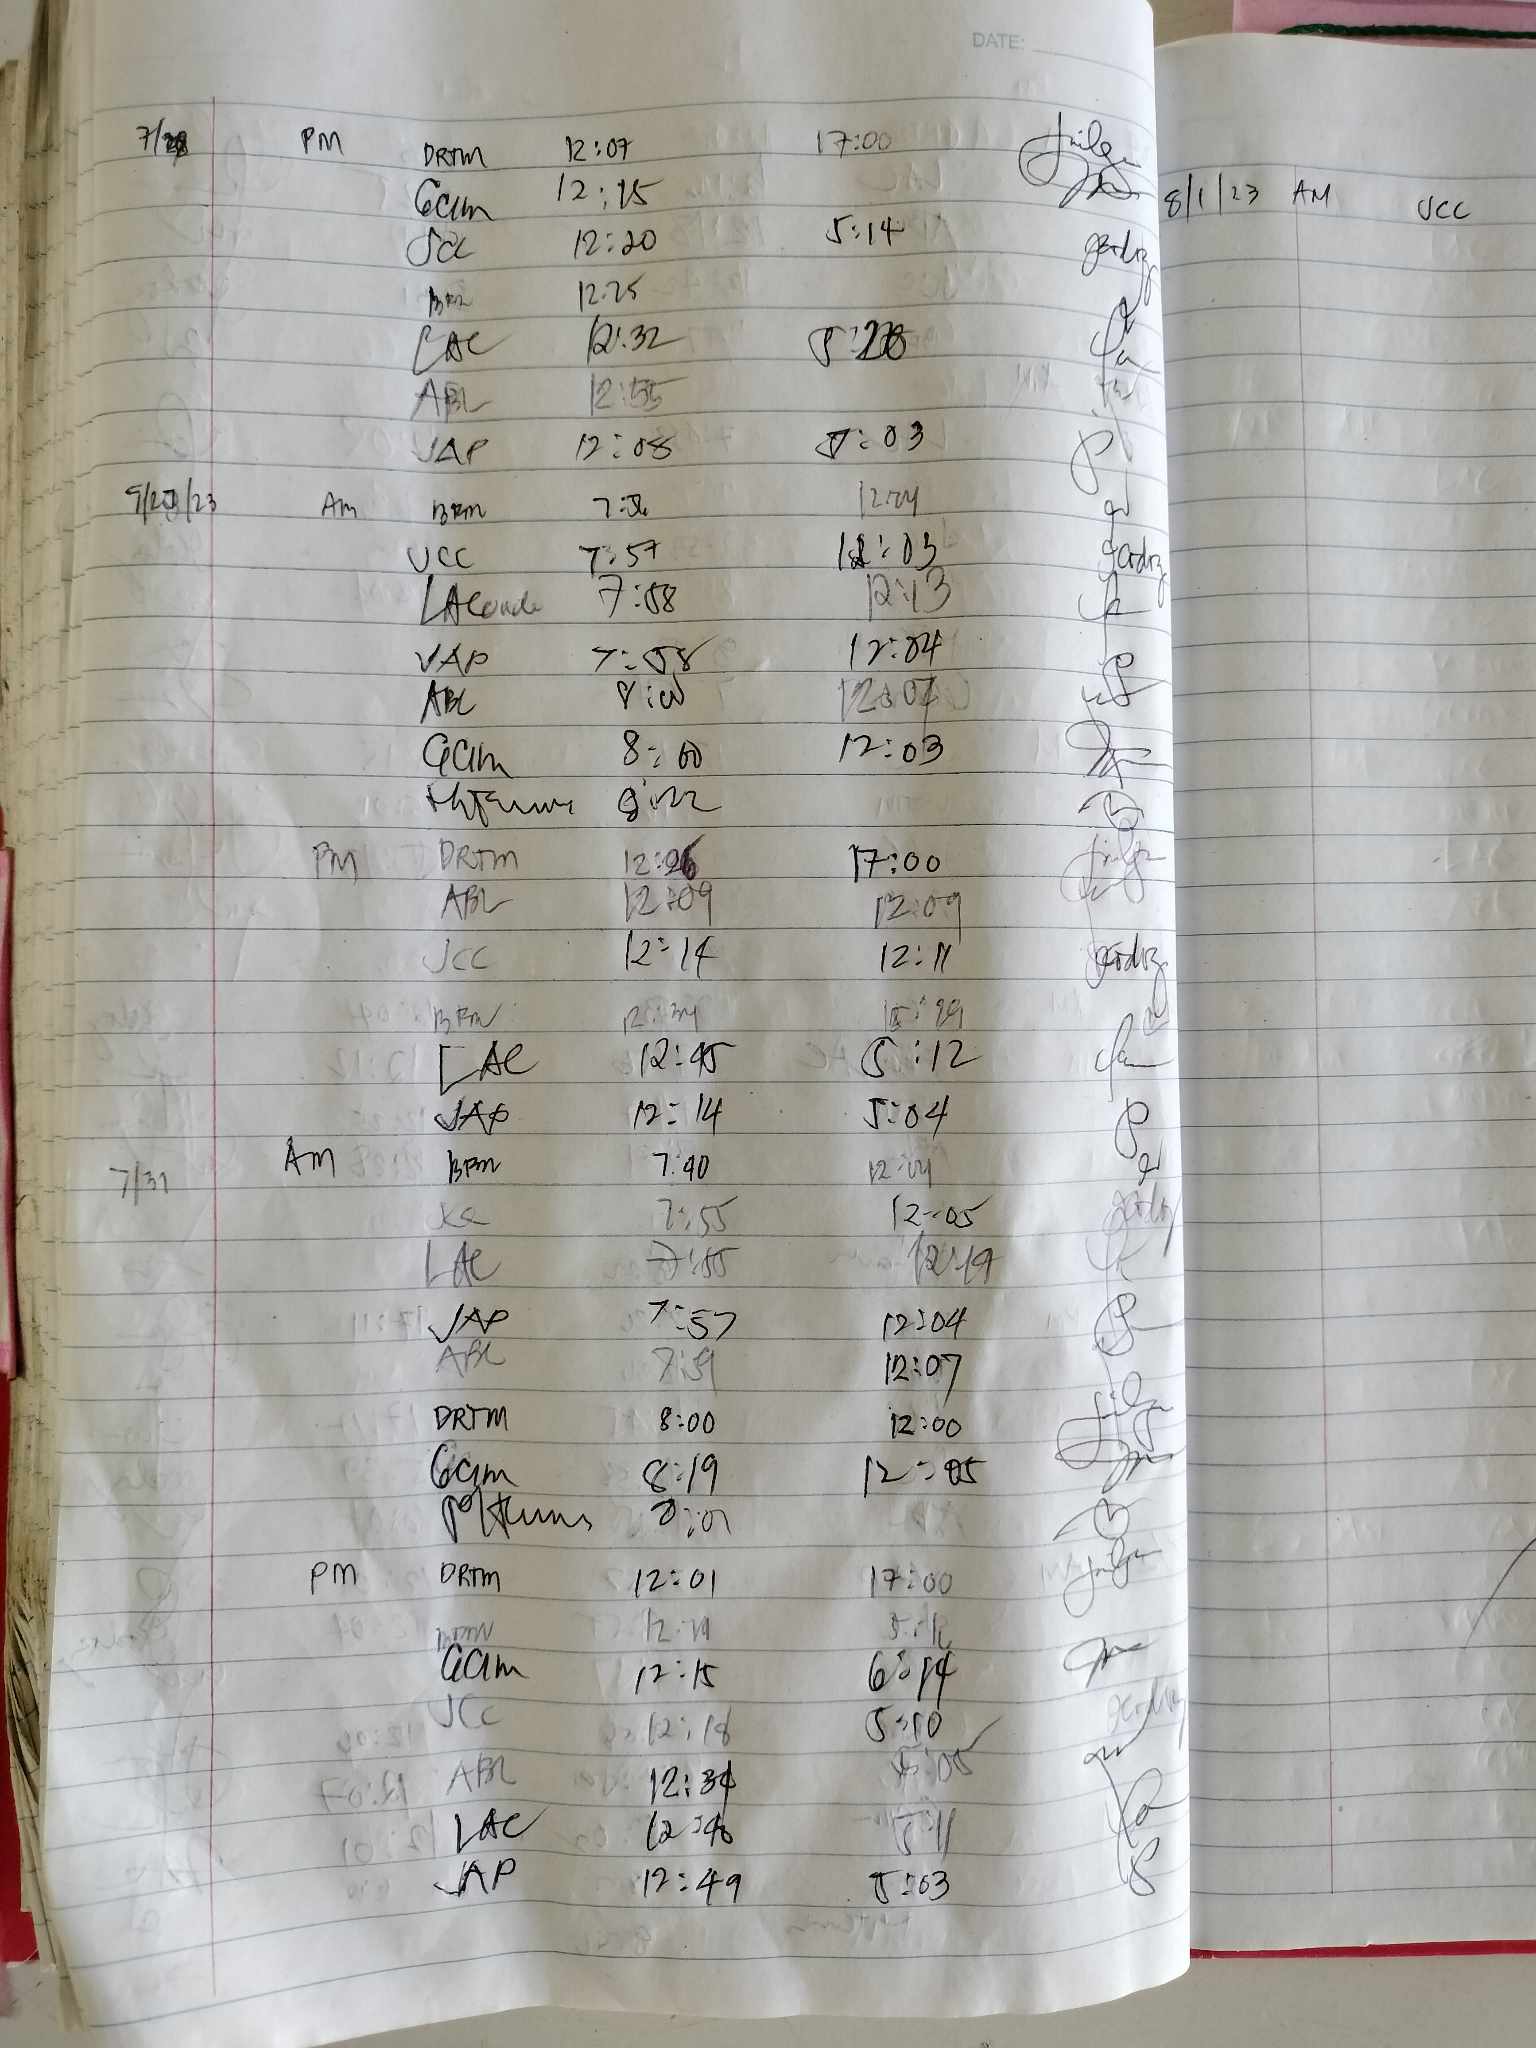 DATE:
7/28 PM DRTM 12:07 17:00
GCLM 12:15
JCC 12:20 5:14
BRM 12:25
LAC 12:32
ABL 12:55
JAP 12:08 5:03
AM BRM 12:04
JCC 7:57 12:03
LAConde 7:58 12:13
JAP 7:58 12:04
ABL 8:00 12:07
GCLM 8:00 12:03
PM DRTM 17:00
ABL 12:09 12:09
JCC 12:14 12:11
BRM 12:34
LAC 12:45 5:12
JAP 12:14 5:04
7/31 AM BRM 7:40 12:04
JCC 7:55 12:05
LAC 7:55 12:19
JAP 7:57 12:04
ABL 7:59 12:07
DRTM 8:00 12:00
GCLM 8:19 12:05
PM DRTM 12:01 17:00
BRM
GCLM 12:15 6:14
JCC 12:18 5:10
ABL 12:34 5:05
LAC 12:48 5:11
JAP 12:49 5:03
8/1/23 AM JCC